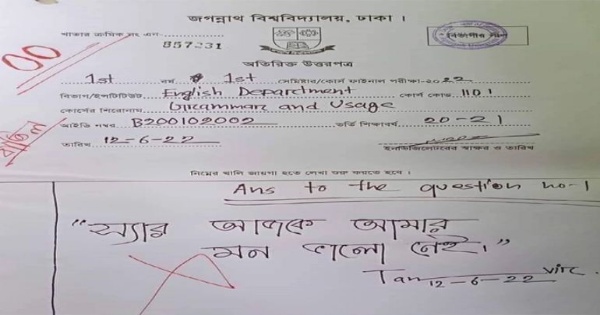 জগন্নাথ বিশ্ববিদ্যালয়, ঢাকা ।
খাতার ক্রমিক নং এস- 857231
00
অতিরিক্ত উত্তরপত্র
1st বর্ষ 1st সেমিস্টার/কোর্স ফাইনাল পরীক্ষা-২০22
বিভাগ/ইনস্টিটিউট English Department কোর্স কোড 1101
কোর্সের শিরোনাম Grammar and Usage
আইডি নম্বর B200102002 ভর্তি শিক্ষাবর্ষ 20-21
বাতিল
তারিখ 12-6-22 ইনভিজিলেটরের স্বাক্ষর ও তারিখ
নিম্নের খালি জায়গা হতে লেখা শুরু করতে হবে ।
Ans to the question no-1
"স্যার আজকে আমার
মন ভালো নেই।"
12-6-22